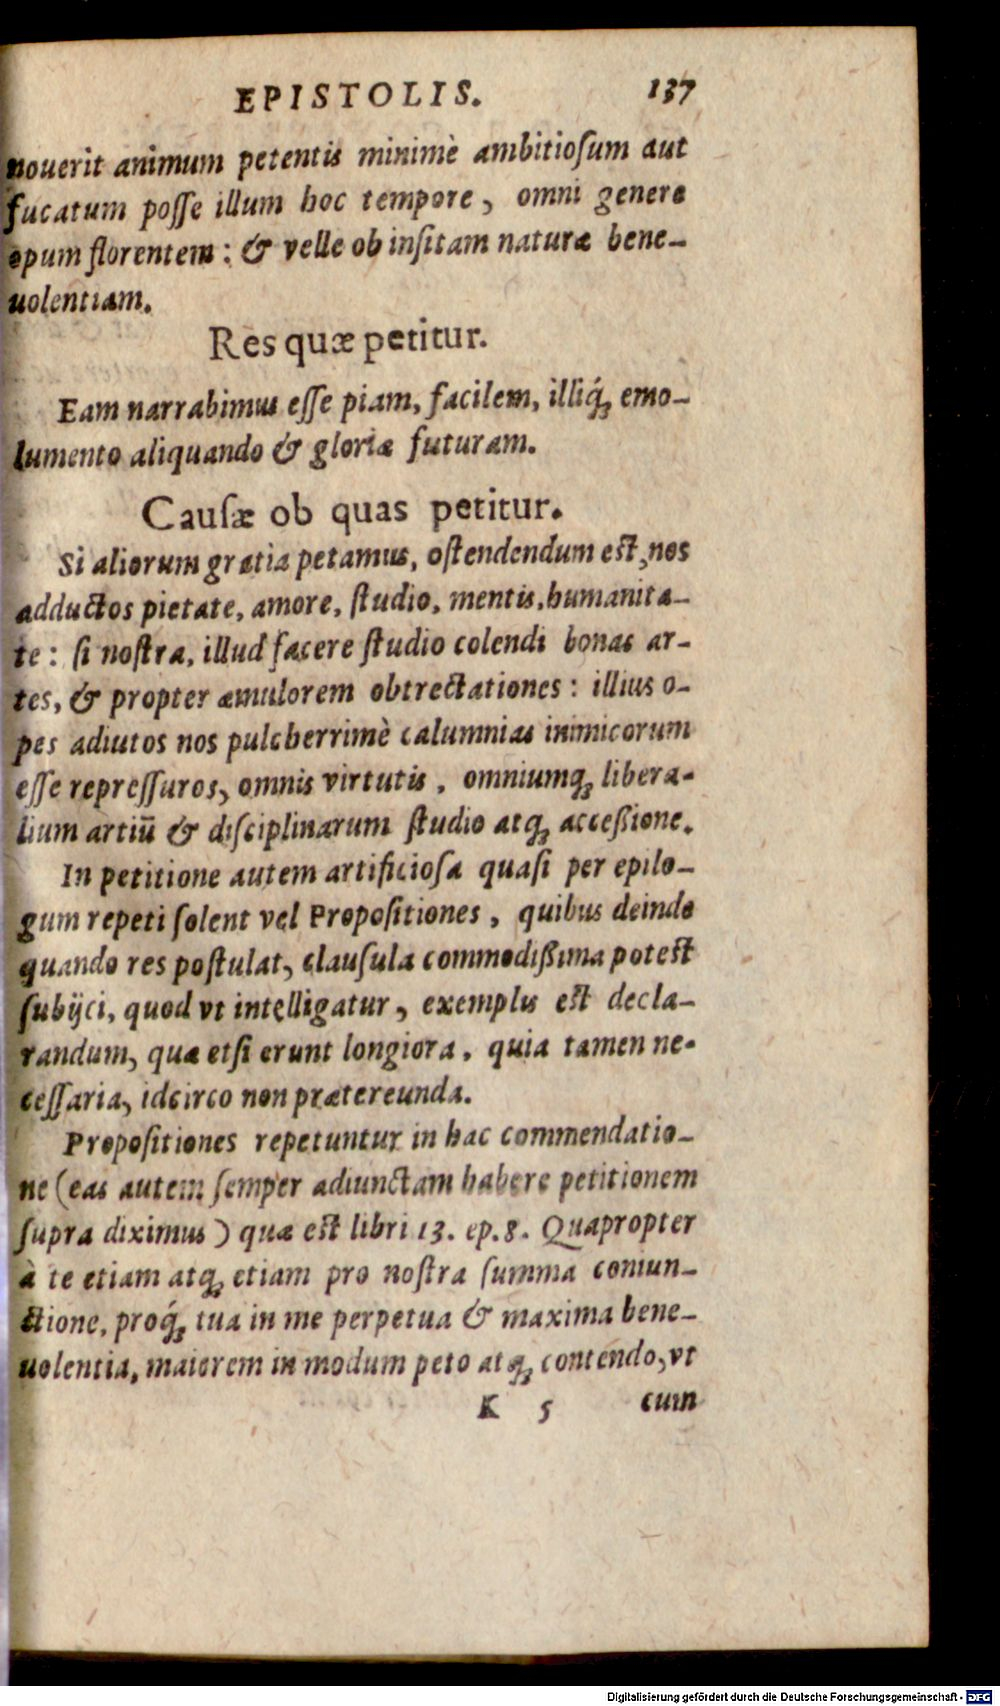 EPISTOLIS. 137
nouerit animum petentis minimè ambitioſum aut
fucatum poſſe illum hoc tempore, omni genere
opum florentem: & velle ob inſitam naturæ bene-
uolentiam.
Res quæ petitur.
Eam narrabimus eſſe piam, facilem, illiq́; emo-
lumento aliquando & gloriæ futuram.
Cauſæ ob quas petitur.
Si aliorum gratia petamus, oſtendendum eſt, nos
adductos pietate, amore, ſtudio, mentis, humanita-
te: ſi noſtra, illud facere ſtudio colendi bonas ar-
tes, & propter æmulorem obtrectationes: illius o-
pes adiutos nos pulcherrimè calumnias inimicorum
eſſe repreſſuros, omnis virtutis, omniumq; libera-
lium artiū & diſciplinarum ſtudio atq; acceßione.
In petitione autem artificioſa quaſi per epilo-
gum repeti ſolent vel Propoſitiones, quibus deinde
quando res poſtulat, clauſula commodißima poteſt
ſubijci, quod vt intelligatur, exemplis eſt decla-
randum, quæ etſi erunt longiora, quia tamen ne-
ceſſaria, idcirco non prætereunda.
Propoſitiones repetuntur in hac commendatio-
ne (eas autem ſemper adiunctam habere petitionem
ſupra diximus) quæ eſt libri 13. ep. 8. Quapropter
à te etiam atq; etiam pro noſtra ſumma coniun-
ctione, proq́; tua in me perpetua & maxima bene-
uolentia, maiorem in modum peto atq; contendo, vt
K 5 cum
Digitalisierung gefördert durch die Deutsche Forschungsgemeinschaft - DFG